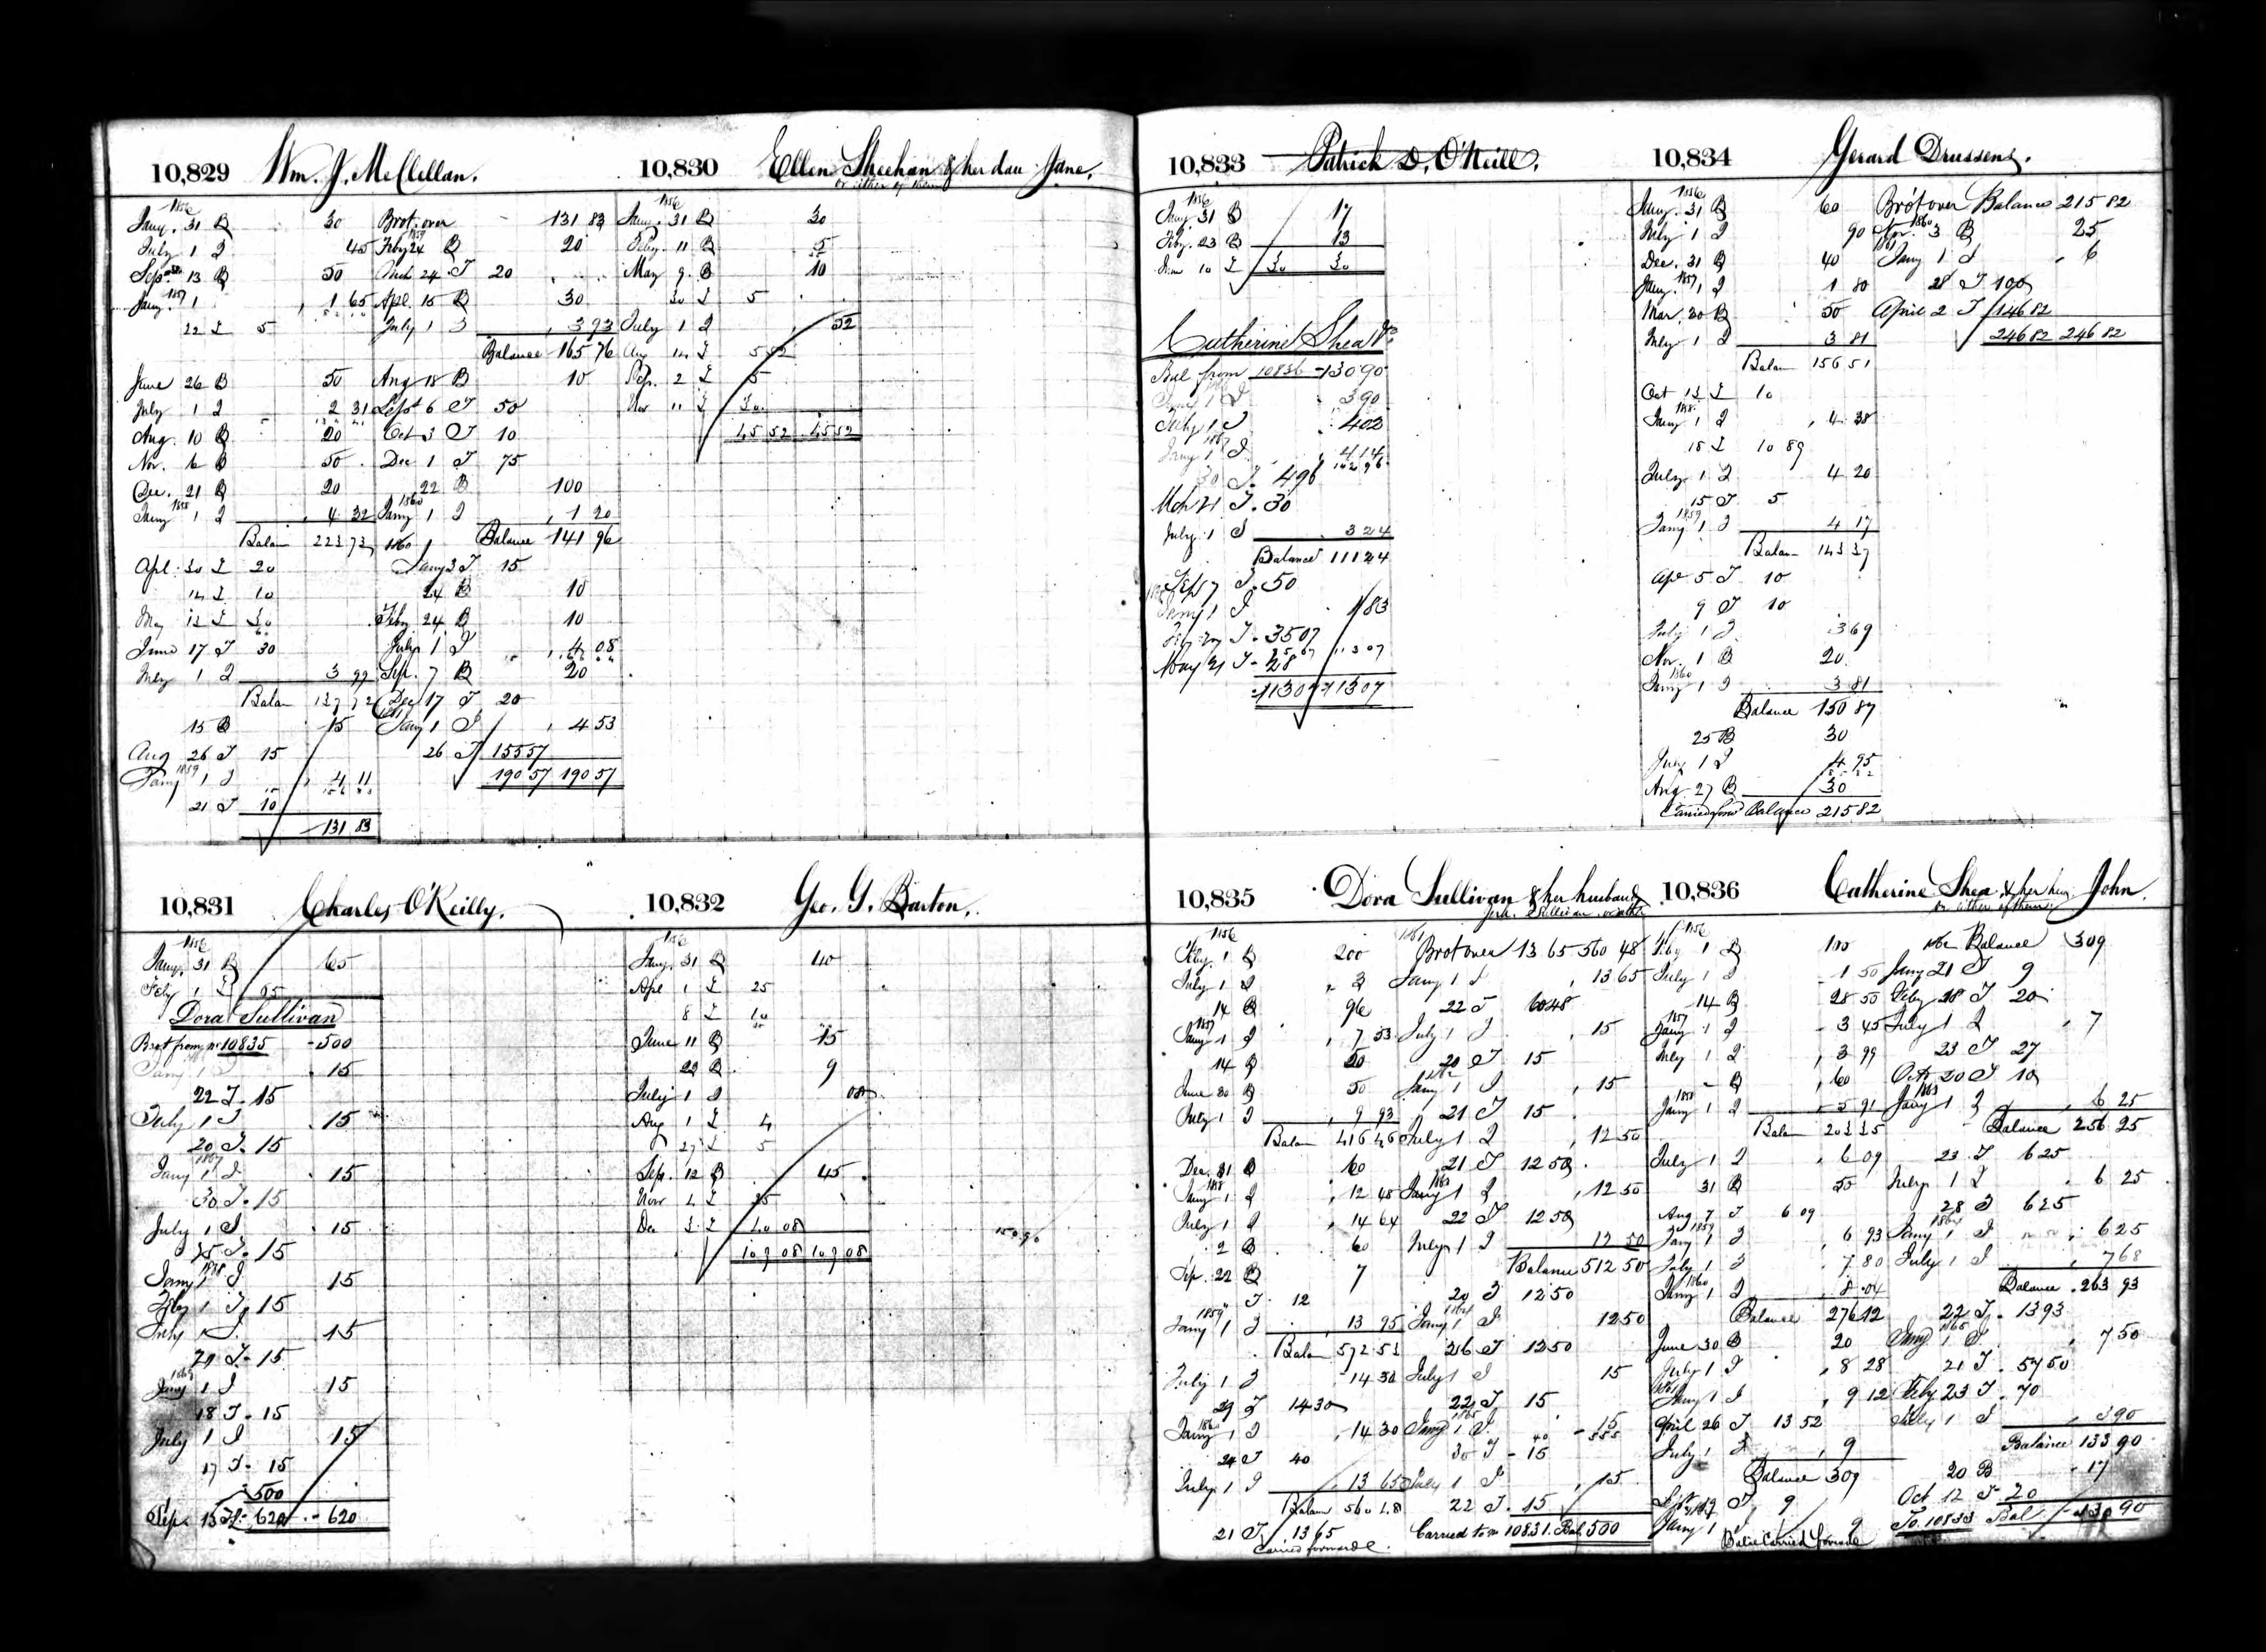 10,829 Wm. J. McClellan.
1856
Jany. 31 B 30
July 1 I 45
Sep. 13 B 50
Jany. 1857 1 1 65
22 T 5
June 26 B 50
July 1 I 2 31
Aug. 10 B 20
Nov. 6 B 50
Dec. 21 B 20
Jany 1858 1 I 4 32
Balan 223 73
Apl. 30 T 20
14 T 10
May 13 T 50
June 17 T 30
July 1 I 3 99
Balan 137 72
15 B 15
Aug 26 T 15
Jany 1859 1 I 4 11
21 T 10
131 83
Brot. over 131 83
Feby 24 1859 B 20
Mch 24 T 20
Apl. 15 B 30
July 1 I 3 93
Balance 165 76
Aug 18 B 10
Sept 6 T 50
Oct 3 T 10
Dec 1 T 75
22 B 100
1860
Jany 1 I 1 20
1860 Balance 141 96
Jany 3 T 15
24 B 10
Feby 24 B 10
July 1 I 4 08
Sep. 7 B 20
Dec 17 T 20
1861
Jany 1 I 4 53
26 T 155 57
190 57 190 57
10,830 Ellen Sheehan & her dau Jane.
or either of them
1856
Jany. 31 B 30
Feby. 11 B 5
May 9 B 10
30 T 5
July 1 I 52
Aug 14 T 5 52
Sep. 2 T 5
Nov 11 T 30
45 52 45 52
10,831 Charles O'Reilly.
1856
Jany. 31 B 65
Feby 1 T 65
Dora Sullivan
Brot from No 10835 500
Jany 1 I 15
22 T 15
July 1 I 15
20 T 15
Jany 1867 1 I 15
30 T 15
July 1 I 15
25 T 15
Jany 1868 1 I 15
Feby 1 T 15
July 1 I 15
29 T 15
Jany 1869 1 I 15
18 T 15
July 1 I 15
17 T 15
500
Sep. 15 T 620 620
10,832 Geo. G. Barton.
1856
Jany. 31 B 40
Apl 1 T 25
8 T 10
June 11 B 15
22 B 9
July 1 I 08
Aug 1 T 4
27 T 5
Sep. 12 B 45
Nov 4 T 25
Dec 3 T 40 08
109 08 109 08
10,833 Patrick D. O'Neill.
1856
Jany 31 B 17
Feby. 23 B 13
June 10 T 30 30
Catherine Shea
Bal from 10836 130 90
Jany 1 I 3 90
July 1 I 4 02
Jany 1867 1 I 4 14
30 T 4 96
Mch 21 T 30
July 1 I 3 24
Balance 111 24
Sep 7 T 50
Jany 1 I 1 83
T 35 07
May 21 T 28
113 07 113 07
10,834 Gerard Drussens.
1856
Jany. 31 B 60
July 1 I 90
Dec. 31 B 40
Jany. 1857 1 I 1 80
Mar. 30 B 50
July 1 I 3 81
Balan 156 51
Oct 13 T 10
Jany 1858 1 I 4 38
18 T 10 89
July 1 I 4 20
15 T 5
Jany 1859 1 I 4 17
Balan 143 37
Apr 5 T 10
9 T 10
July 1 I 3 69
Nov. 1 B 20
Jany 1860 1 I 3 81
Balance 150 87
25 B 30
July 1 I 4 95
Aug 27 B 30
Carried forwd Balance 215 82
Brot over Balance 215 82
Nov. 1860 3 B 25
1861 Jany 1 I 6
28 T 100
April 2 T 146 82
246 82 246 82
10,835 Dora Sullivan & her husband
1856
Feby. 1 B 200
July 1 I 3
14 B 96
1857
Jany 1 I 7 33
14 B 50
June 30 B 50
July 1 I 9 93
Balan 416 46
Dec. 31 B 60
Jany 1858 1 I 12 48
July 1 I 14 64
2 B 60
Sep. 22 B 7
T 12
1859
Jany 1 I 13 95
Balan 572 53
July 1 I 14 30
29 T 14 30
Jany 1860 1 I 14 30
24 T 40
July 1 I 13 65
Balan 560 48
21 T 13 65
Carried forward
1861 Brot over 13 65 560 48
Jany 1 I 13 65
22 T 60 48
July 1 I 15
20 T 15
1862 Jany 1 I 15
21 T 15
July 1 I 12 50
21 T 12 50
1863 Jany 1 I 12 50
22 T 12 50
July 1 I 12 50
Balance 512 50
20 T 12 50
1864 Jany 1 I 12 50
26 T 12 50
July 1 I 15
22 T 15
1865 Jany 1 I 15
30 T 15
July 1 I 15
22 T 15
Carried to No 10831 Bal 500
10,836 Catherine Shea & her John.
or either of them
1856
Feby 1 B 100
July 1 I 1 50
14 B 28 50
1857
Jany. 1 I 3 45
July 1 I 3 99
B 60
1858
Jany 1 I 5 91
Balan 203 35
July 1 I 6 09
31 B 50
Aug. 7 T 6 09
1859 Jany 1 I 6 93
July 1 I 7 80
1860 Jany 1 I 8 04
Balance 276 12
June 30 B 20
July 1 I 8 28
1861 Jany 1 I 9 12
April 26 T 13 52
July 1 I 9
Balance 309
Sept 19 T 9
Jany 1 I 9
Balce Carried forward
1862 Balance 309
Jany 21 T 9
Feby 28 T 20
July 1 I 7
23 T 27
Octr 20 T 10
1863
Jany 1 I 6 25
Balance 256 25
23 T 6 25
July 1 I 6 25
28 T 6 25
1864
Jany 1 I 6 25
July 1 I 7 68
Balance 263 93
22 T 13 93
1865
Jany 1 I 7 50
21 T 57 50
Feby 23 T 70
July 1 I 3 90
Balance 133 90
20 B 17
Oct 12 T 20
To 10833 Bal 130 90